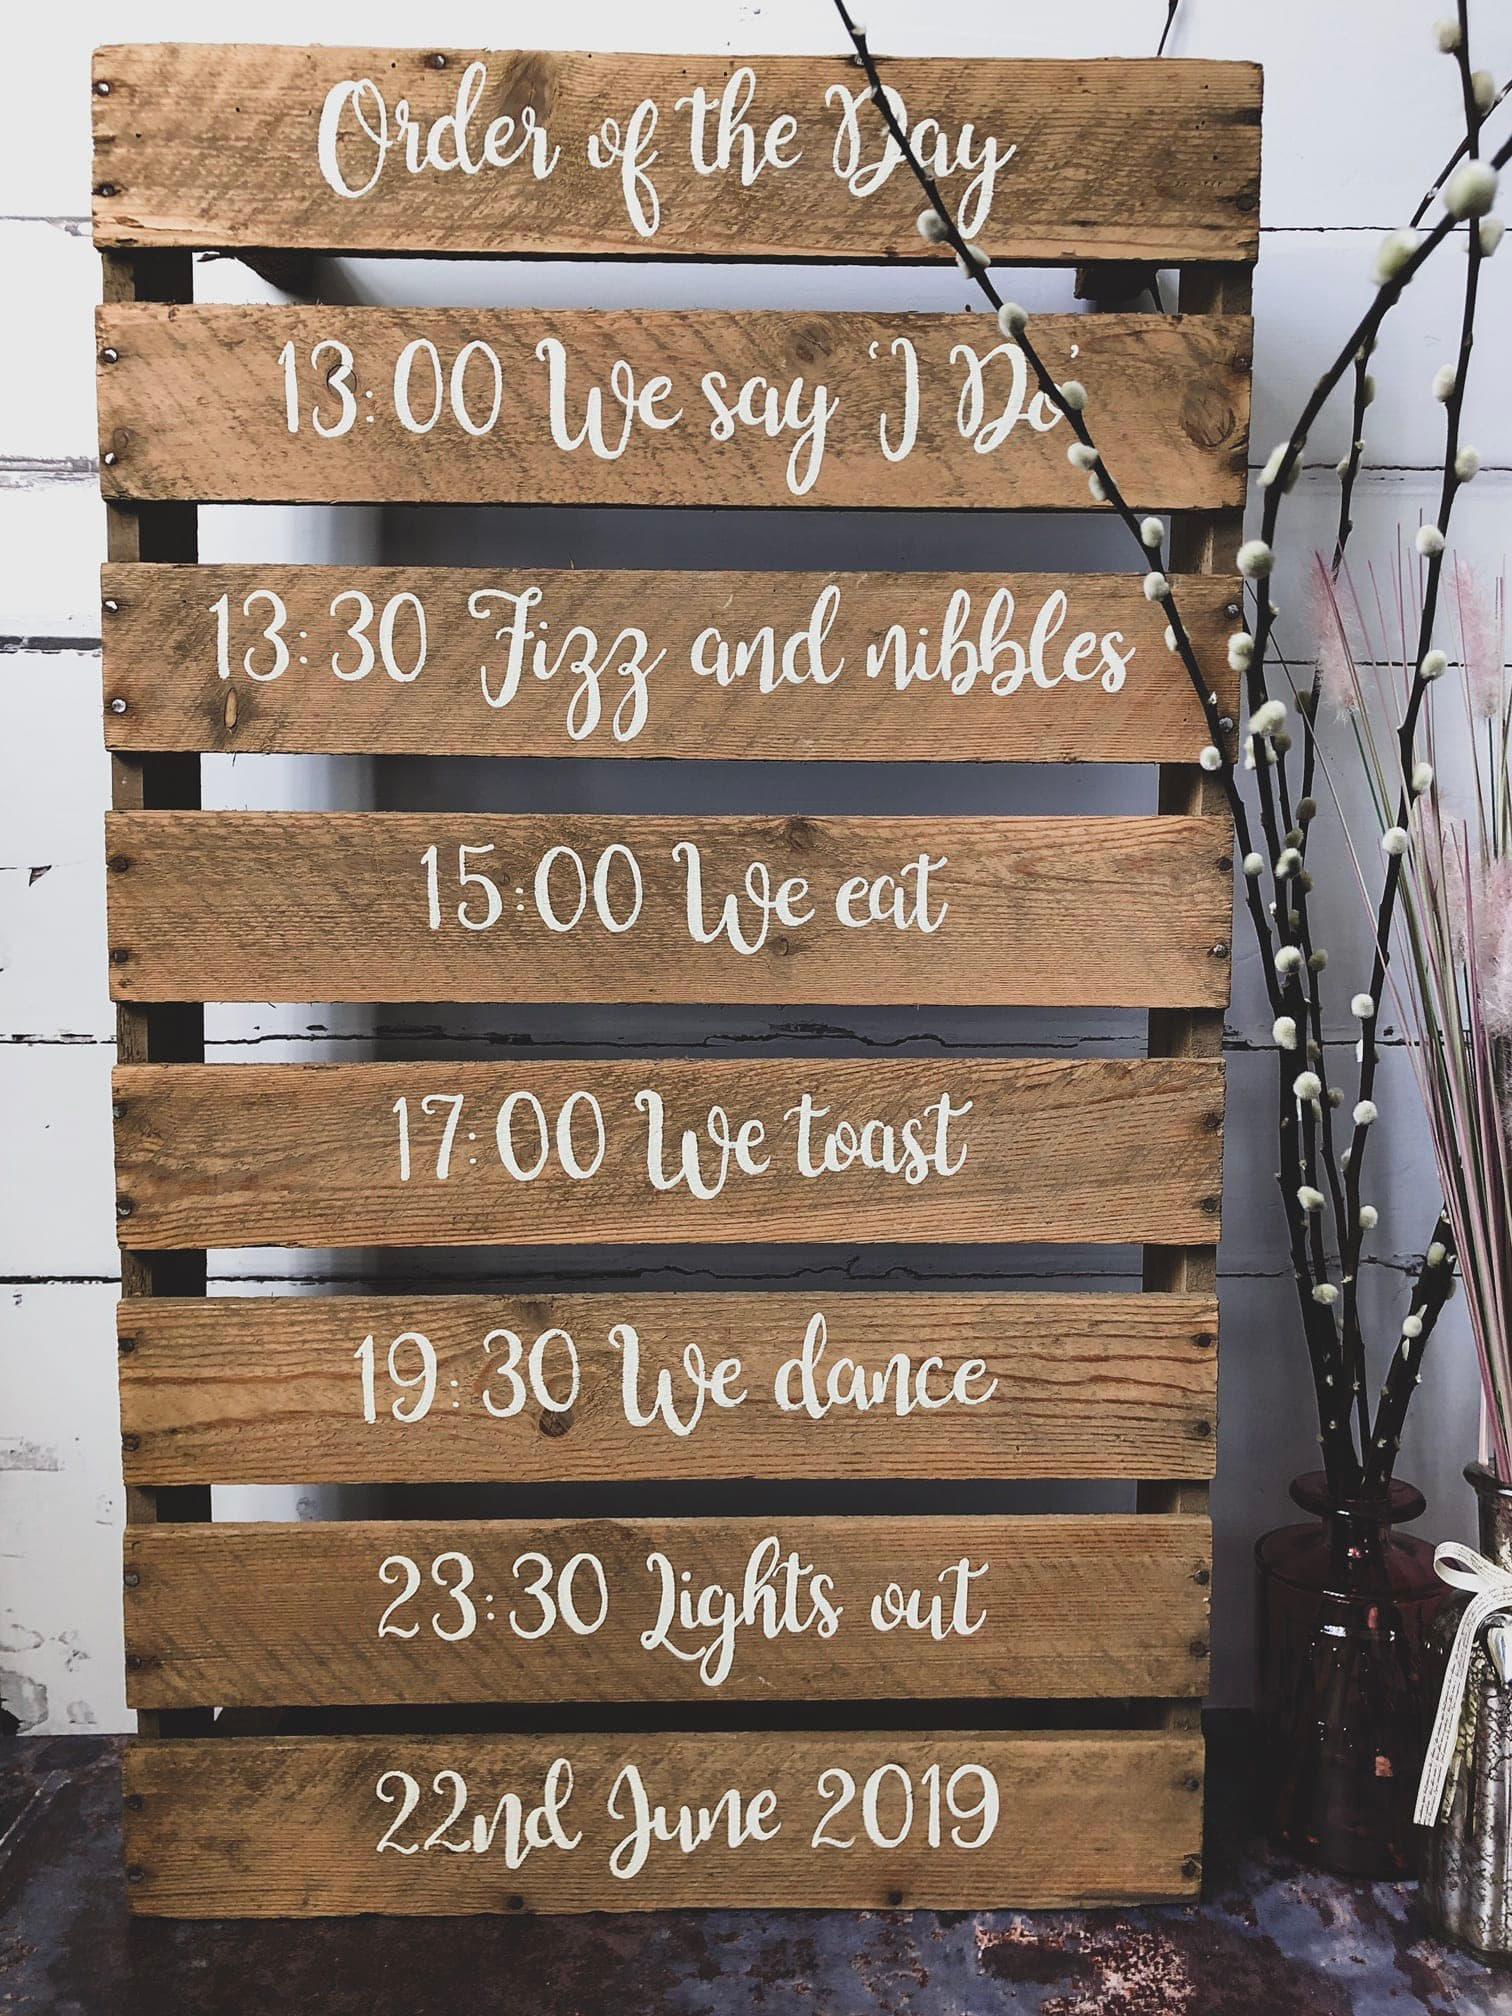 Order of the Day
13:00 We say 'I Do'
13:30 Fizz and nibbles
15:00 We eat
17:00 We toast
19:30 We dance
23:30 Lights out
22nd June 2019